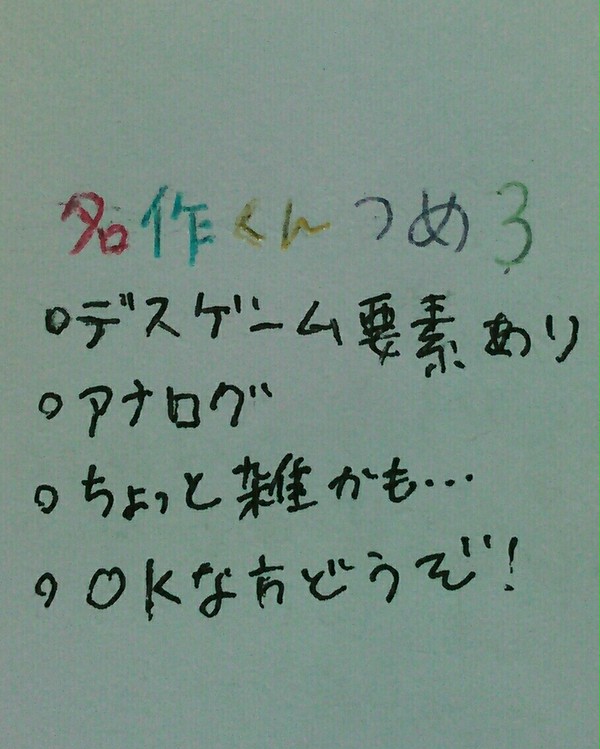 名作くんつめ3
○デスゲーム要素あり
○アナログ
○ちょっと雑かも…
○OKな方どうぞ!